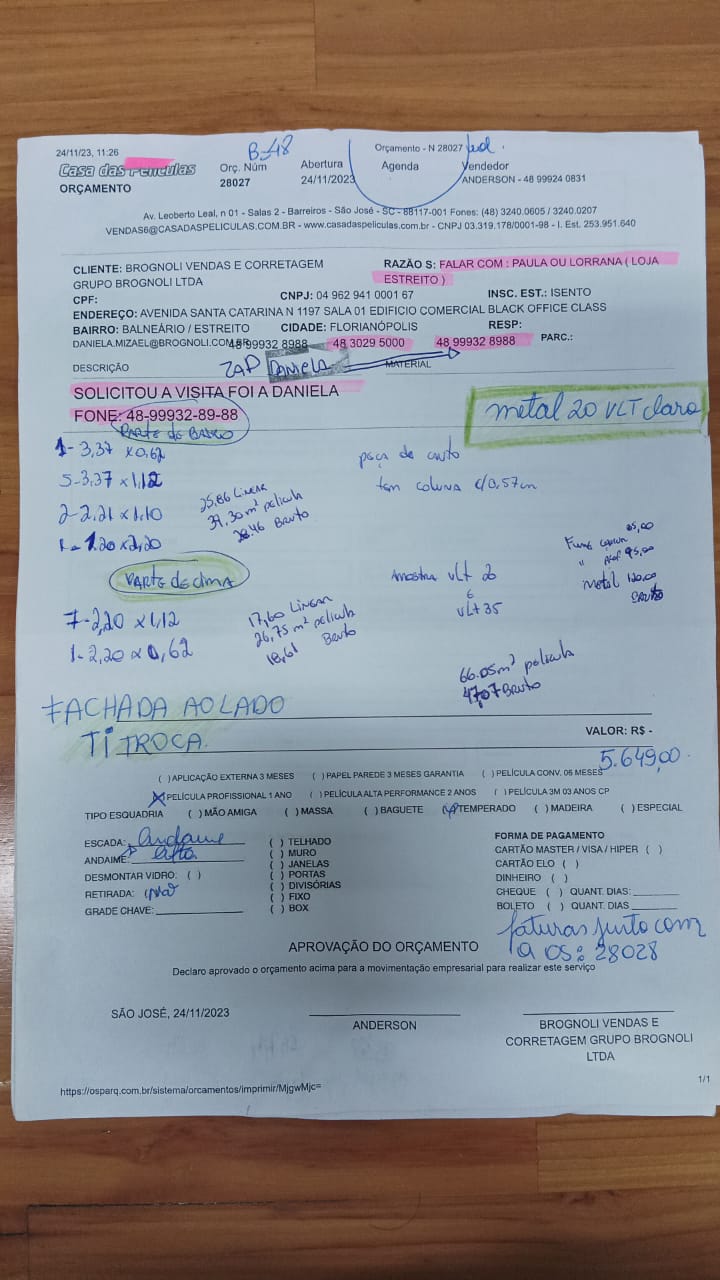 24/11/23, 11:26
B-48
Orçamento - N 28027
Casa das Películas
Orç. Núm
Abertura
Agenda
Vendedor
ORÇAMENTO
28027
24/11/2023
ANDERSON - 48 99924 0831
Av. Leoberto Leal, n 01 - Salas 2 - Barreiros - São José - SC - 88117-001 Fones: (48) 3240.0605 / 3240.0207
VENDAS6@CASADASPELICULAS.COM.BR - www.casadaspeliculas.com.br - CNPJ 03.319.178/0001-98 - I. Est. 253.951.640
CLIENTE: BROGNOLI VENDAS E CORRETAGEM
GRUPO BROGNOLI LTDA
RAZÃO S: FALAR COM : PAULA OU LORRANA ( LOJA
ESTREITO )
CPF:
CNPJ: 04 962 941 0001 67
INSC. EST.: ISENTO
ENDEREÇO: AVENIDA SANTA CATARINA N 1197 SALA 01 EDIFICIO COMERCIAL BLACK OFFICE CLASS
BAIRRO: BALNEÁRIO / ESTREITO
CIDADE: FLORIANÓPOLIS
RESP:
DANIELA.MIZAEL@BROGNOLI.COM.BR
48 99932 8988
48 3029 5000
48 99932 8988
PARC.:
DESCRIÇÃO
ZAP DANIELA
MATERIAL
SOLICITOU A VISITA FOI A DANIELA
FONE: 48-99932-89-88
metal 20 VLT claro
PARTE de BAIXO
1- 3,37 x 0,62
5-3,37 x 1,12
2-2,21 x 1,10
1- 1,20 x 2,20
25,86 Linear
39,30 m² película
28.46 Bruto
peça de canto
tem coluna c/0,57cm
95,00
metal 120,00
Bruto
PARTE de cima
7-2,20 x 1,12
1-2,20 x 0,62
17,60 Linear
26,75 m² película
18,61 Bruto
Amostra VLT 20
VLT 35
66.05m² película
47,07 Bruto
FACHADA AO LADO
TI TROCA.
VALOR: R$ -
5.649,00
( ) APLICAÇÃO EXTERNA 3 MESES ( ) PAPEL PAREDE 3 MESES GARANTIA ( ) PELÍCULA CONV. 06 MESES
(X) PELÍCULA PROFISSIONAL 1 ANO ( ) PELÍCULA ALTA PERFORMANCE 2 ANOS ( ) PELÍCULA 3M 03 ANOS CP
TIPO ESQUADRIA ( ) MÃO AMIGA ( ) MASSA ( ) BAGUETE ( ) TEMPERADO ( ) MADEIRA ( ) ESPECIAL
ESCADA: andaime
ANDAIME:
DESMONTAR VIDRO: ( )
RETIRADA:
GRADE CHAVE:
( ) TELHADO
( ) MURO
( ) JANELAS
( ) PORTAS
( ) DIVISÓRIAS
( ) FIXO
( ) BOX
FORMA DE PAGAMENTO
CARTÃO MASTER / VISA / HIPER ( )
CARTÃO ELO ( )
DINHEIRO ( )
CHEQUE ( ) QUANT. DIAS:
BOLETO ( ) QUANT. DIAS
faturas junto com
a OS: 28028
APROVAÇÃO DO ORÇAMENTO
Declaro aprovado o orçamento acima para a movimentação empresarial para realizar este serviço
SÃO JOSÉ, 24/11/2023
ANDERSON
BROGNOLI VENDAS E
CORRETAGEM GRUPO BROGNOLI
LTDA
https://osparq.com.br/sistema/orcamentos/imprimir/MjgwMjc=
1/1